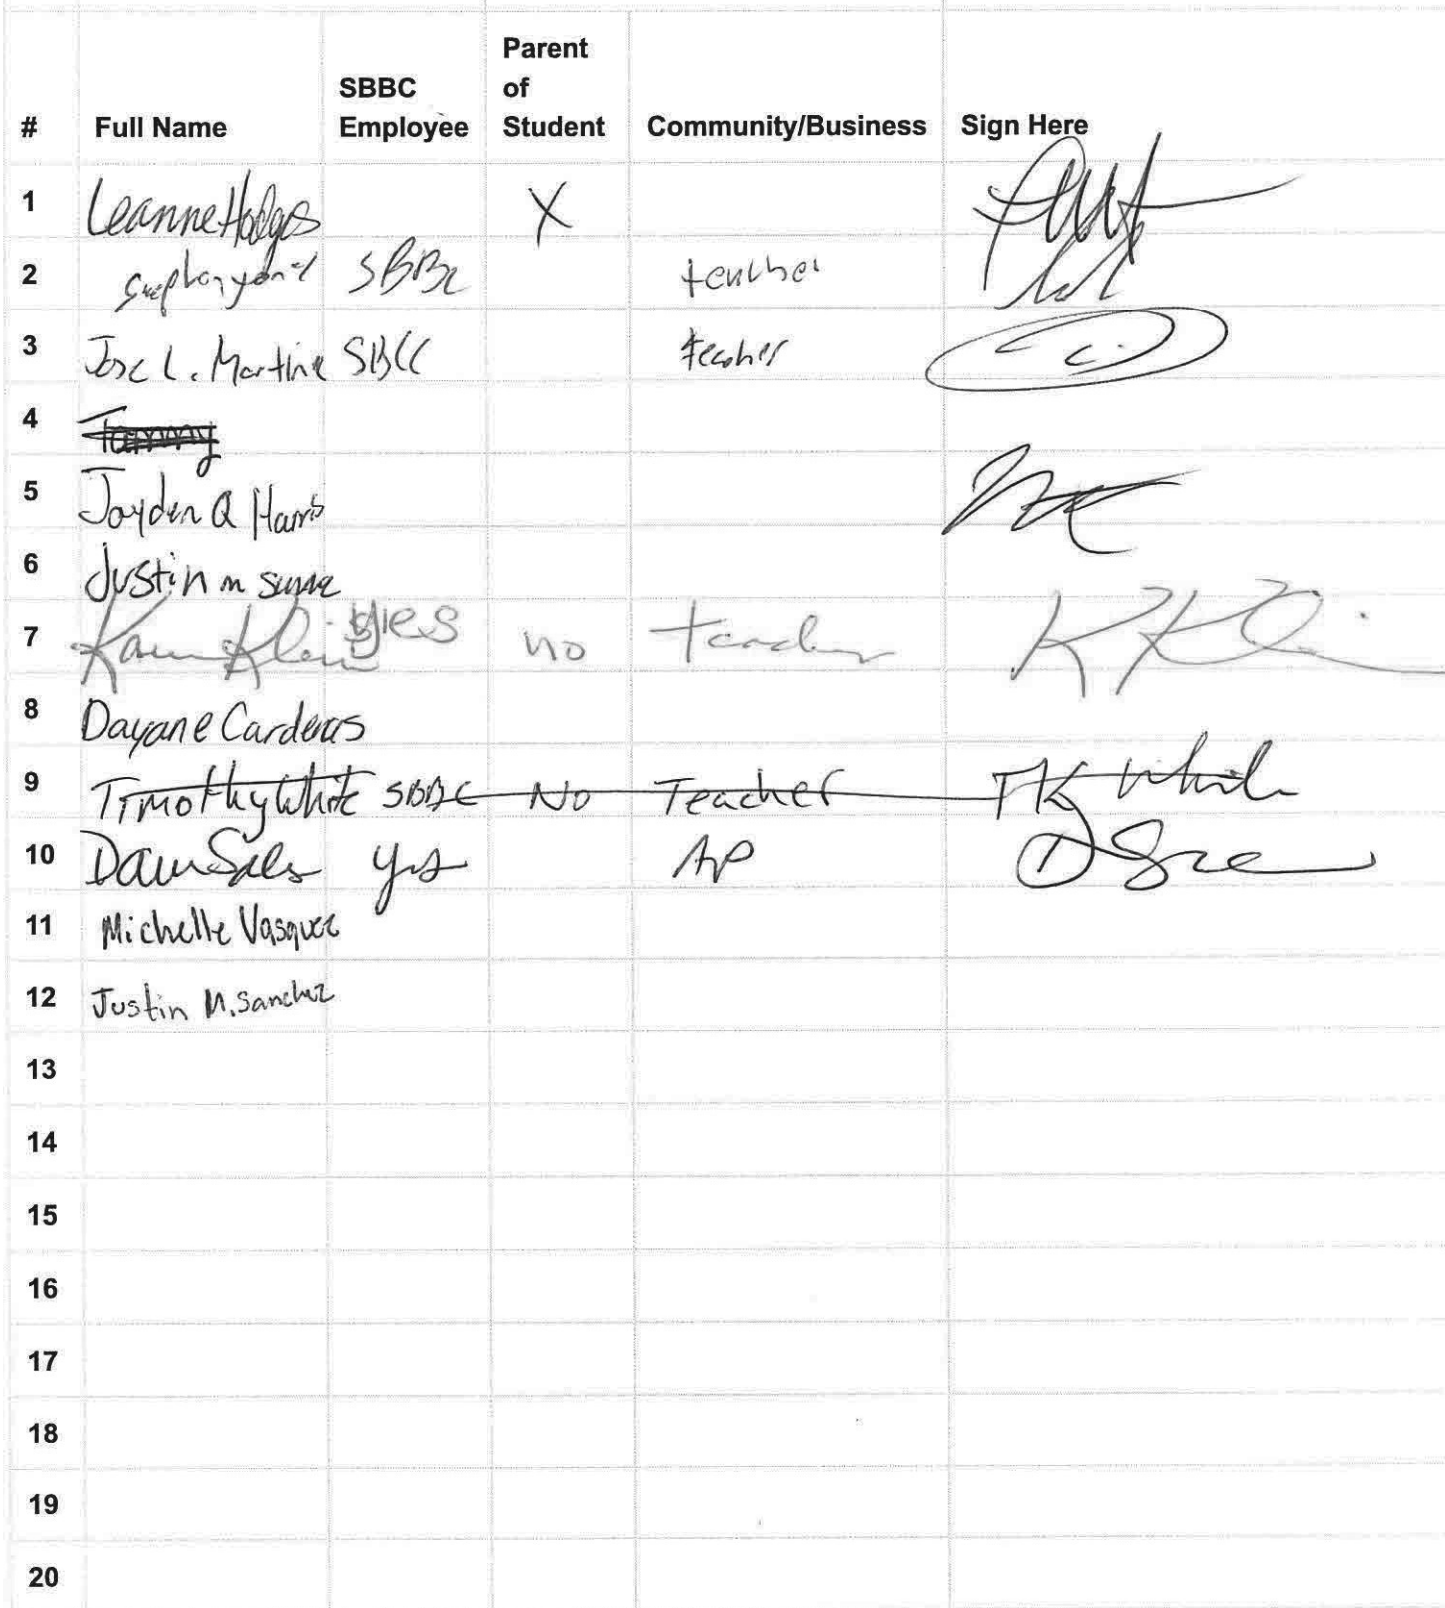 # Full Name SBBC Employee Parent of Student Community/Business Sign Here
1 Leanne Hodges X
2 SBBC teacher
3 Jose L. Martine SBCC teacher
4 Tammy
5 Jayden Q Harris
6 Justin m
7 Karen Klein yes no teacher
8 Dayane Cardenas
9 Timothy White SBBC No Teacher TK White
10 yes AP
11 Michelle Vasquez
12 Justin M. Sanchez
13
14
15
16
17
18
19
20